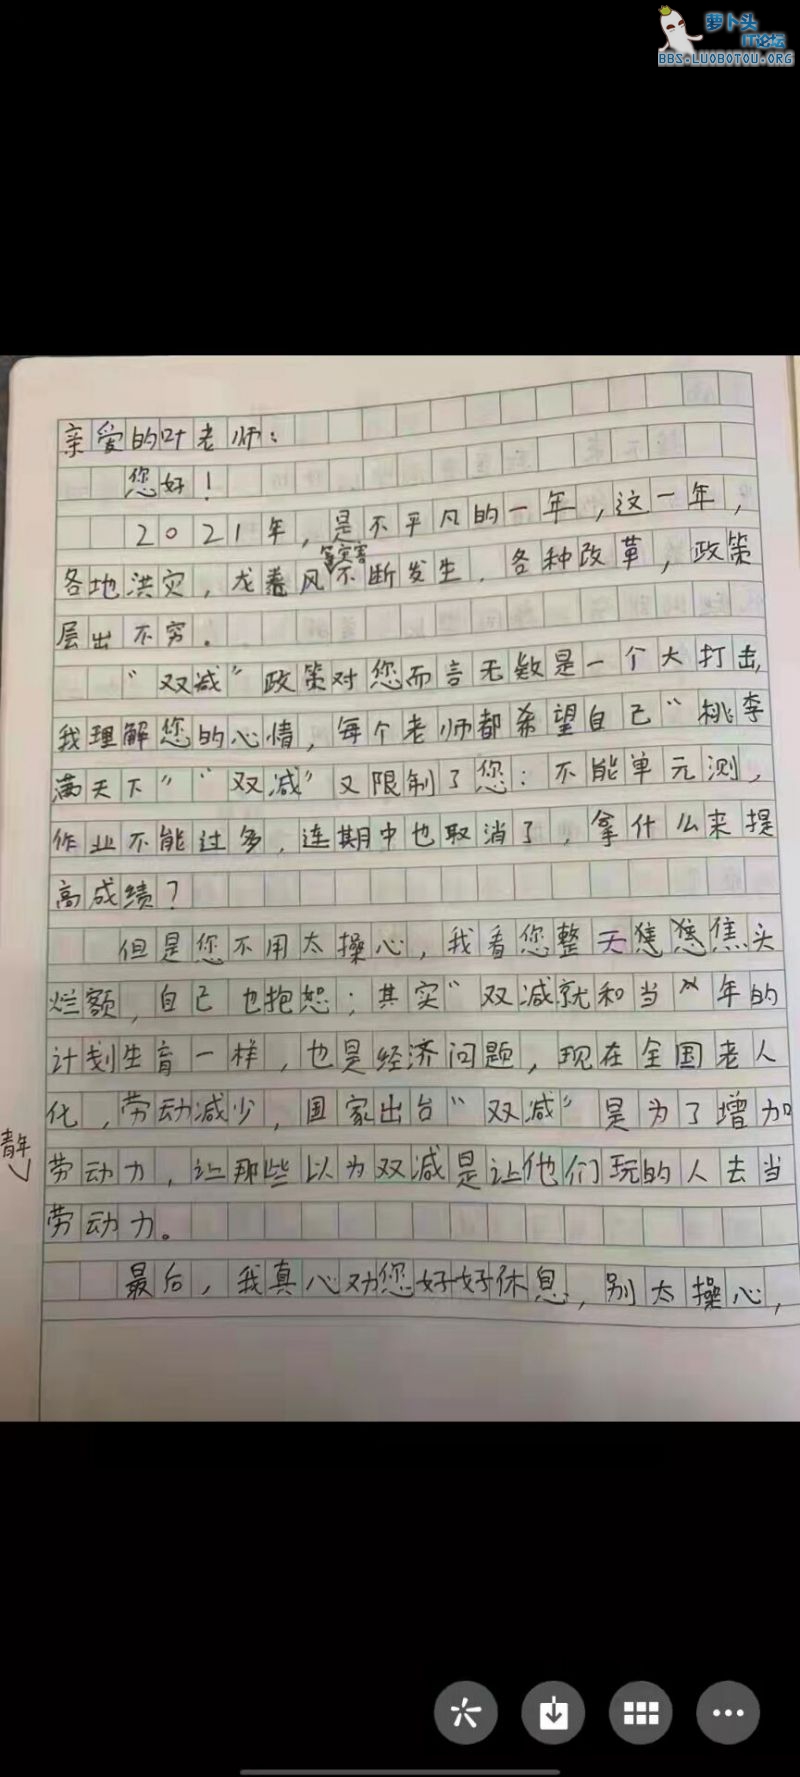 萝卜头
IT论坛
BBS.LUOBOTOU.ORG
亲爱的叶老师：
您好！
2021年，是不平凡的一年，这一年，
等灾害
各地洪灾，龙卷风不断发生．各种改革，政策
层出不穷．
“双减”政策对您而言无数是一个大打击，
我理解您的心情，每个老师都希望自己“桃李
满天下”“双减”又限制了您：不能单元测，
作业不能过多，连期中也取消了，拿什么来提
高成绩？
但是您不用太操心，我看您整天焦头
烂额，自己也抱恕；其实“双减就和当年的
计划生育一样，也是经济问题，现在全国老人
化，劳动减少，国家出台“双减”是为了增加
青年
劳动力，让那些以为双减是让他们玩的人去当
劳动力。
最后，我真心劝您好好休息，别太操心，